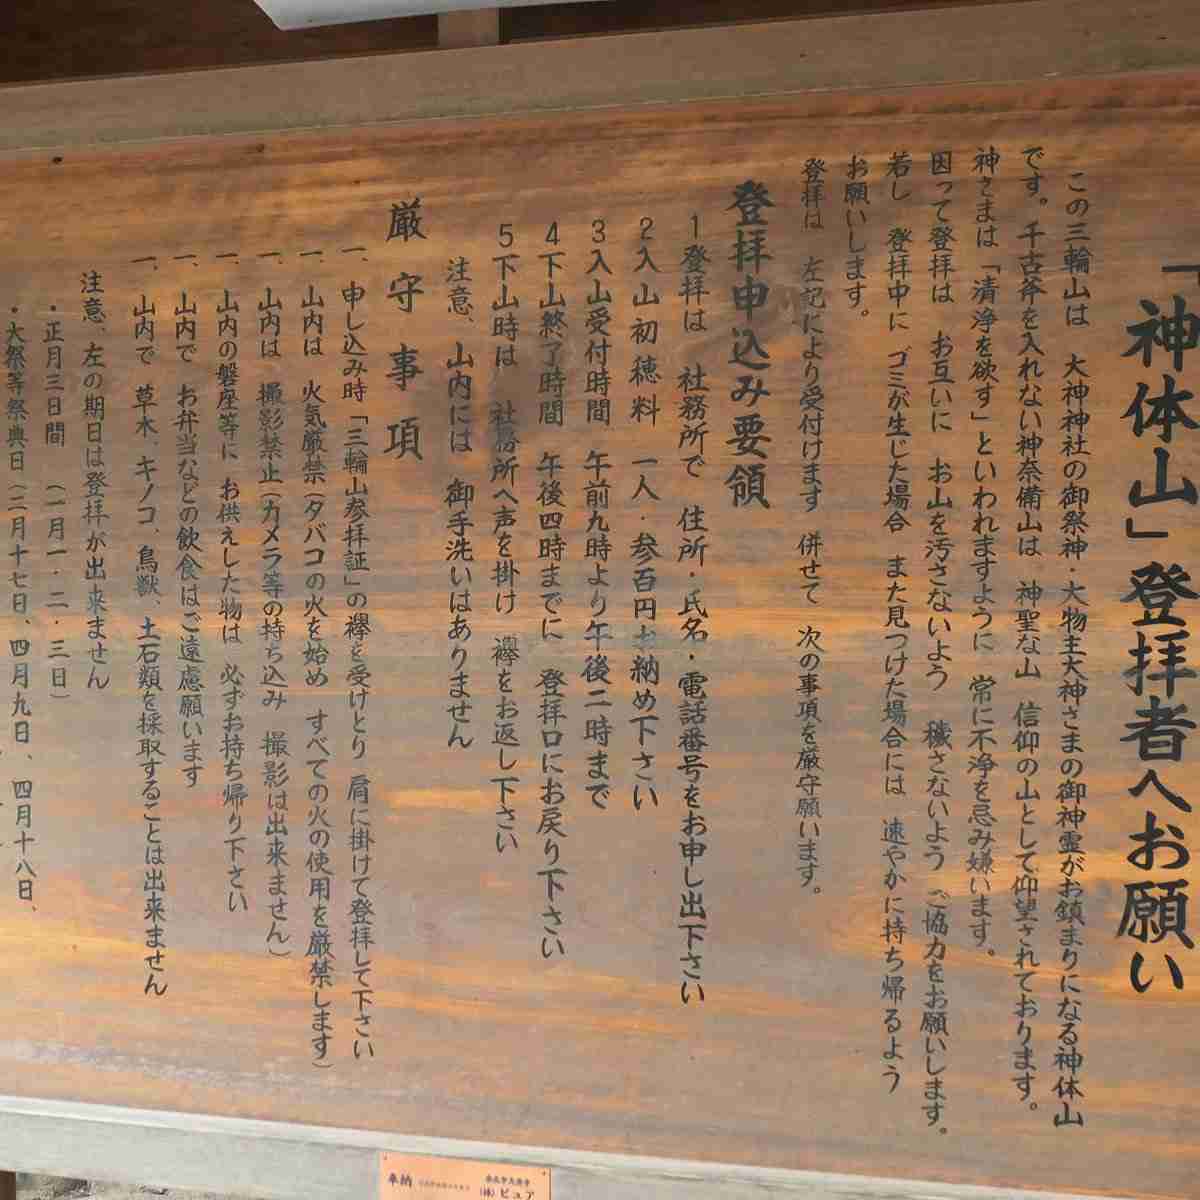 「神体山」登拝者へお願い
この三輪山は 大神神社の御祭神・大物主大神さまの御神霊がお鎮まりになる神体山
です。千古斧を入れない神奈備山は 神聖な山 信仰の山として仰望されております。
神さまは「清浄を欲す」といわれますように 常に不浄を忌み嫌います。
因って登拝は お互いに お山を汚さないよう 穢さないよう ご協力をお願いします。
若し 登拝中に ゴミが生じた場合 また見つけた場合には 速やかに持ち帰るよう
お願いします。
登拝は 左記により受付けます 併せて 次の事項を厳守願います。
登拝申込み要領
1登拝は 社務所で 住所・氏名・電話番号をお申し出下さい
2入山初穂料 一人・参百円お納め下さい
3入山受付時間 午前九時より午後二時まで
4下山終了時間 午後四時までに 登拝口にお戻り下さい
5下山時は 社務所へ声を掛け 襷をお返し下さい
注意、山内には 御手洗いはありません
厳守事項
一、申し込み時「三輪山参拝証」の襷を受けとり 肩に掛けて登拝して下さい
一、山内は 火気厳禁(タバコの火を始め すべての火の使用を厳禁します)
一、山内は 撮影禁止(カメラ等の持ち込み 撮影は出来ません)
一、山内の磐座等に お供えした物は 必ずお持ち帰り下さい
一、山内で お弁当などの飲食はご遠慮願います
一、山内で 草木、キノコ、鳥獣、土石類を採取することは出来ません
注意、左の期日は登拝が出来ません
・正月三日間 (一月一・二・三日)
・大祭等祭典日(二月十七日、四月九日、四月十八日、
奉納
(株)ピュア